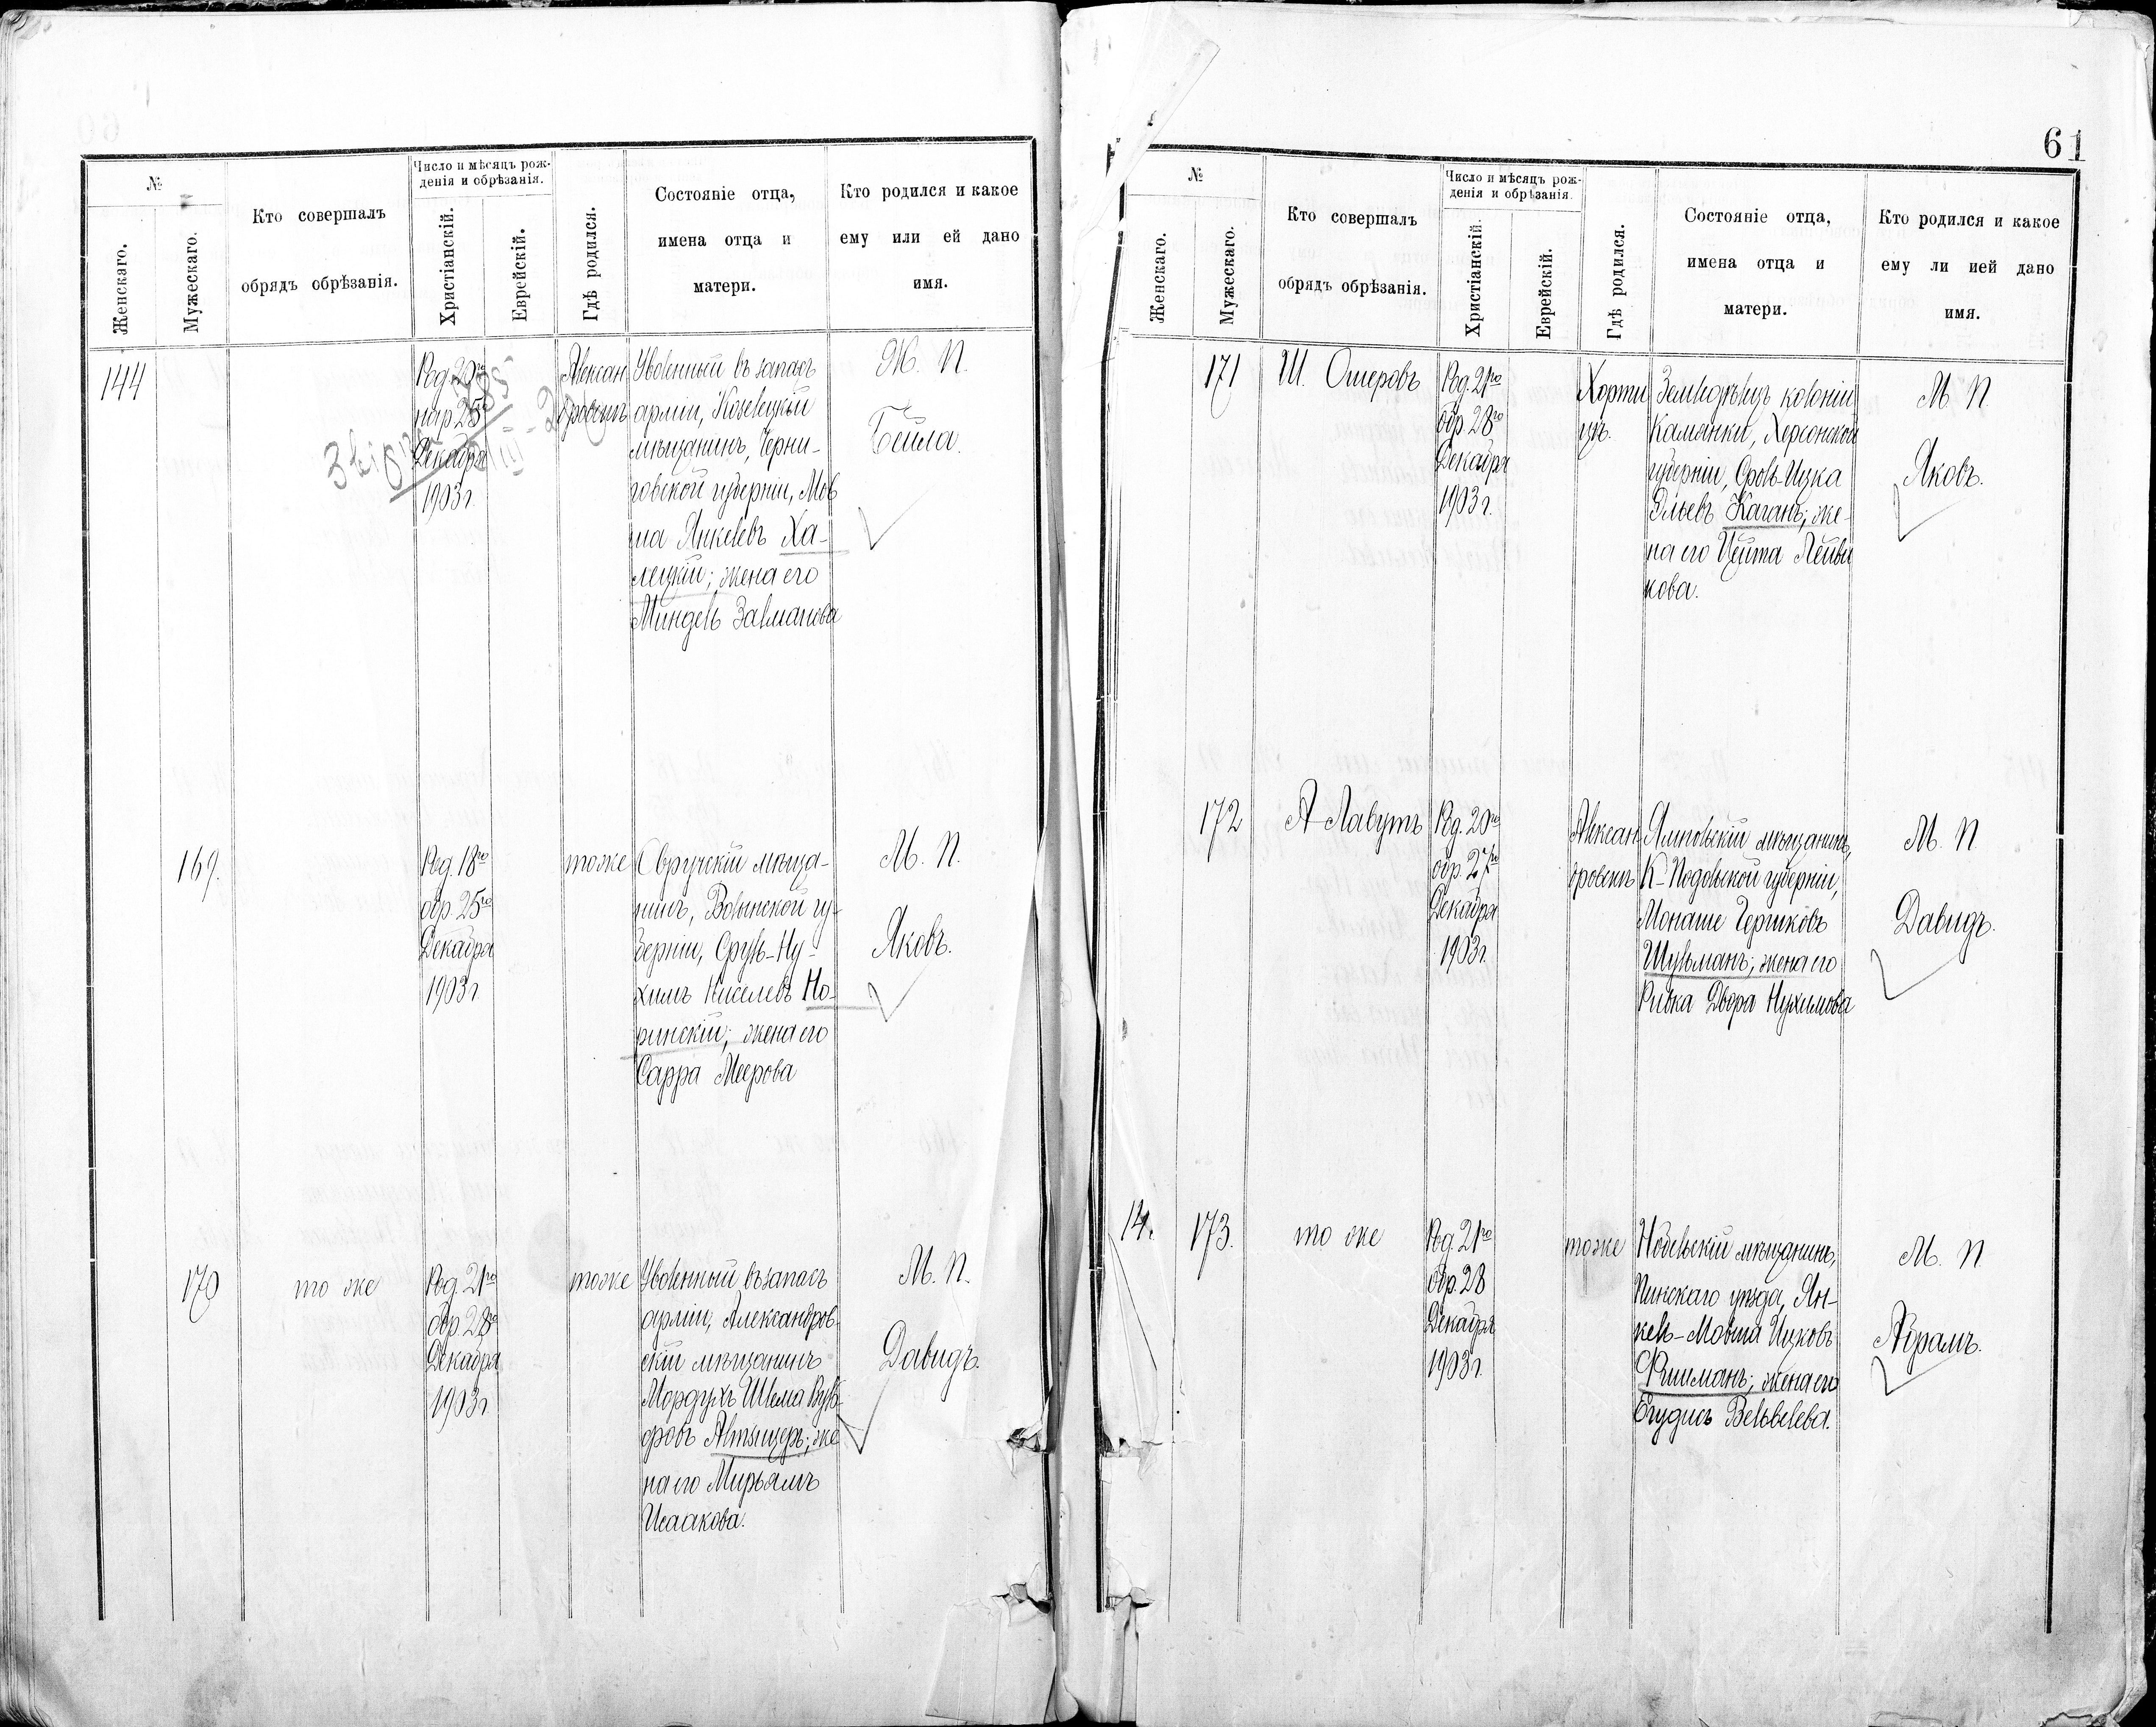 №
Женскаго.
Мужескаго.
Кто совершалъ
обрядъ обрѣзанія.
Число и мѣсяцъ рож-
денія и обрѣзанія.
Христіанскій.
Еврейскій.
Гдѣ родился.
Состояніе отца,
имена отца и
матери.
Кто родился и какое
ему или ей дано
имя.
144
Род. 20го
нар. 25го
Декабря
1903 г.
Александровскъ
Уволенный въ запасъ
арміи, Козелецкій
мѣщанинъ, Черни-
говской губерніи, Мов
ша Янкелевъ Ха-
лецкій; жена его
Миндель Залманова
Ж. П.
Бейла.
169.
Род. 18го
обр. 25го
Декабря
1903 г.
тоже
Овручскій мѣща-
нинъ, Волынской гу-
берніи, Сруль-Ну-
химъ Киселевъ Но-
ринскій; жена его
Сарра Меерова
М. П.
Яковъ.
170
то же
Род. 21го
обр. 28го
Декабря
1903 г.
тоже
Уволенный въ запасъ
арміи, Александров-
скій мѣщанинъ
Мордухъ Шлема
жена его Мирьямъ
Исаакова.
М. П.
Давидъ.
61
№
Женскаго.
Мужескаго.
Кто совершалъ
обрядъ обрѣзанія.
Число и мѣсяцъ рож-
денія и обрѣзанія.
Христіанскій.
Еврейскій.
Гдѣ родился.
Состояніе отца,
имена отца и
матери.
Кто родился и какое
ему ли ией дано
имя.
171
Ш. Ошеровъ
Род. 21го
обр. 28го
Декабря
1903 г.
Хорти
цъ.
Земледѣлецъ колоніи
Каменки, Херсонской
губерніи, Сроль-Ицка
Эльевъ Каганъ; же-
на его Цейта Лейви
кова.
М. П.
Яковъ.
172
А Лавутъ
Род. 20го
обр. 27го
Декабря
1903 г.
Алексан
дровскъ
Ялтповскій мѣщанинъ,
К-Подольской губерніи,
Монаше Гершковъ
Шульманъ; жена его
Ривка Двора Нухимова
М. П.
Давидъ.
14.
173.
то же
Род. 21го
обр. 28
Декабря
1903 г.
тоже
Нобельскій мѣщанинъ,
Пинскаго уѣзда, Ян-
кель-Мовша Ицковъ
Фишманъ; жена его
Егудисъ Вельвелева.
М. П.
Абрамъ.